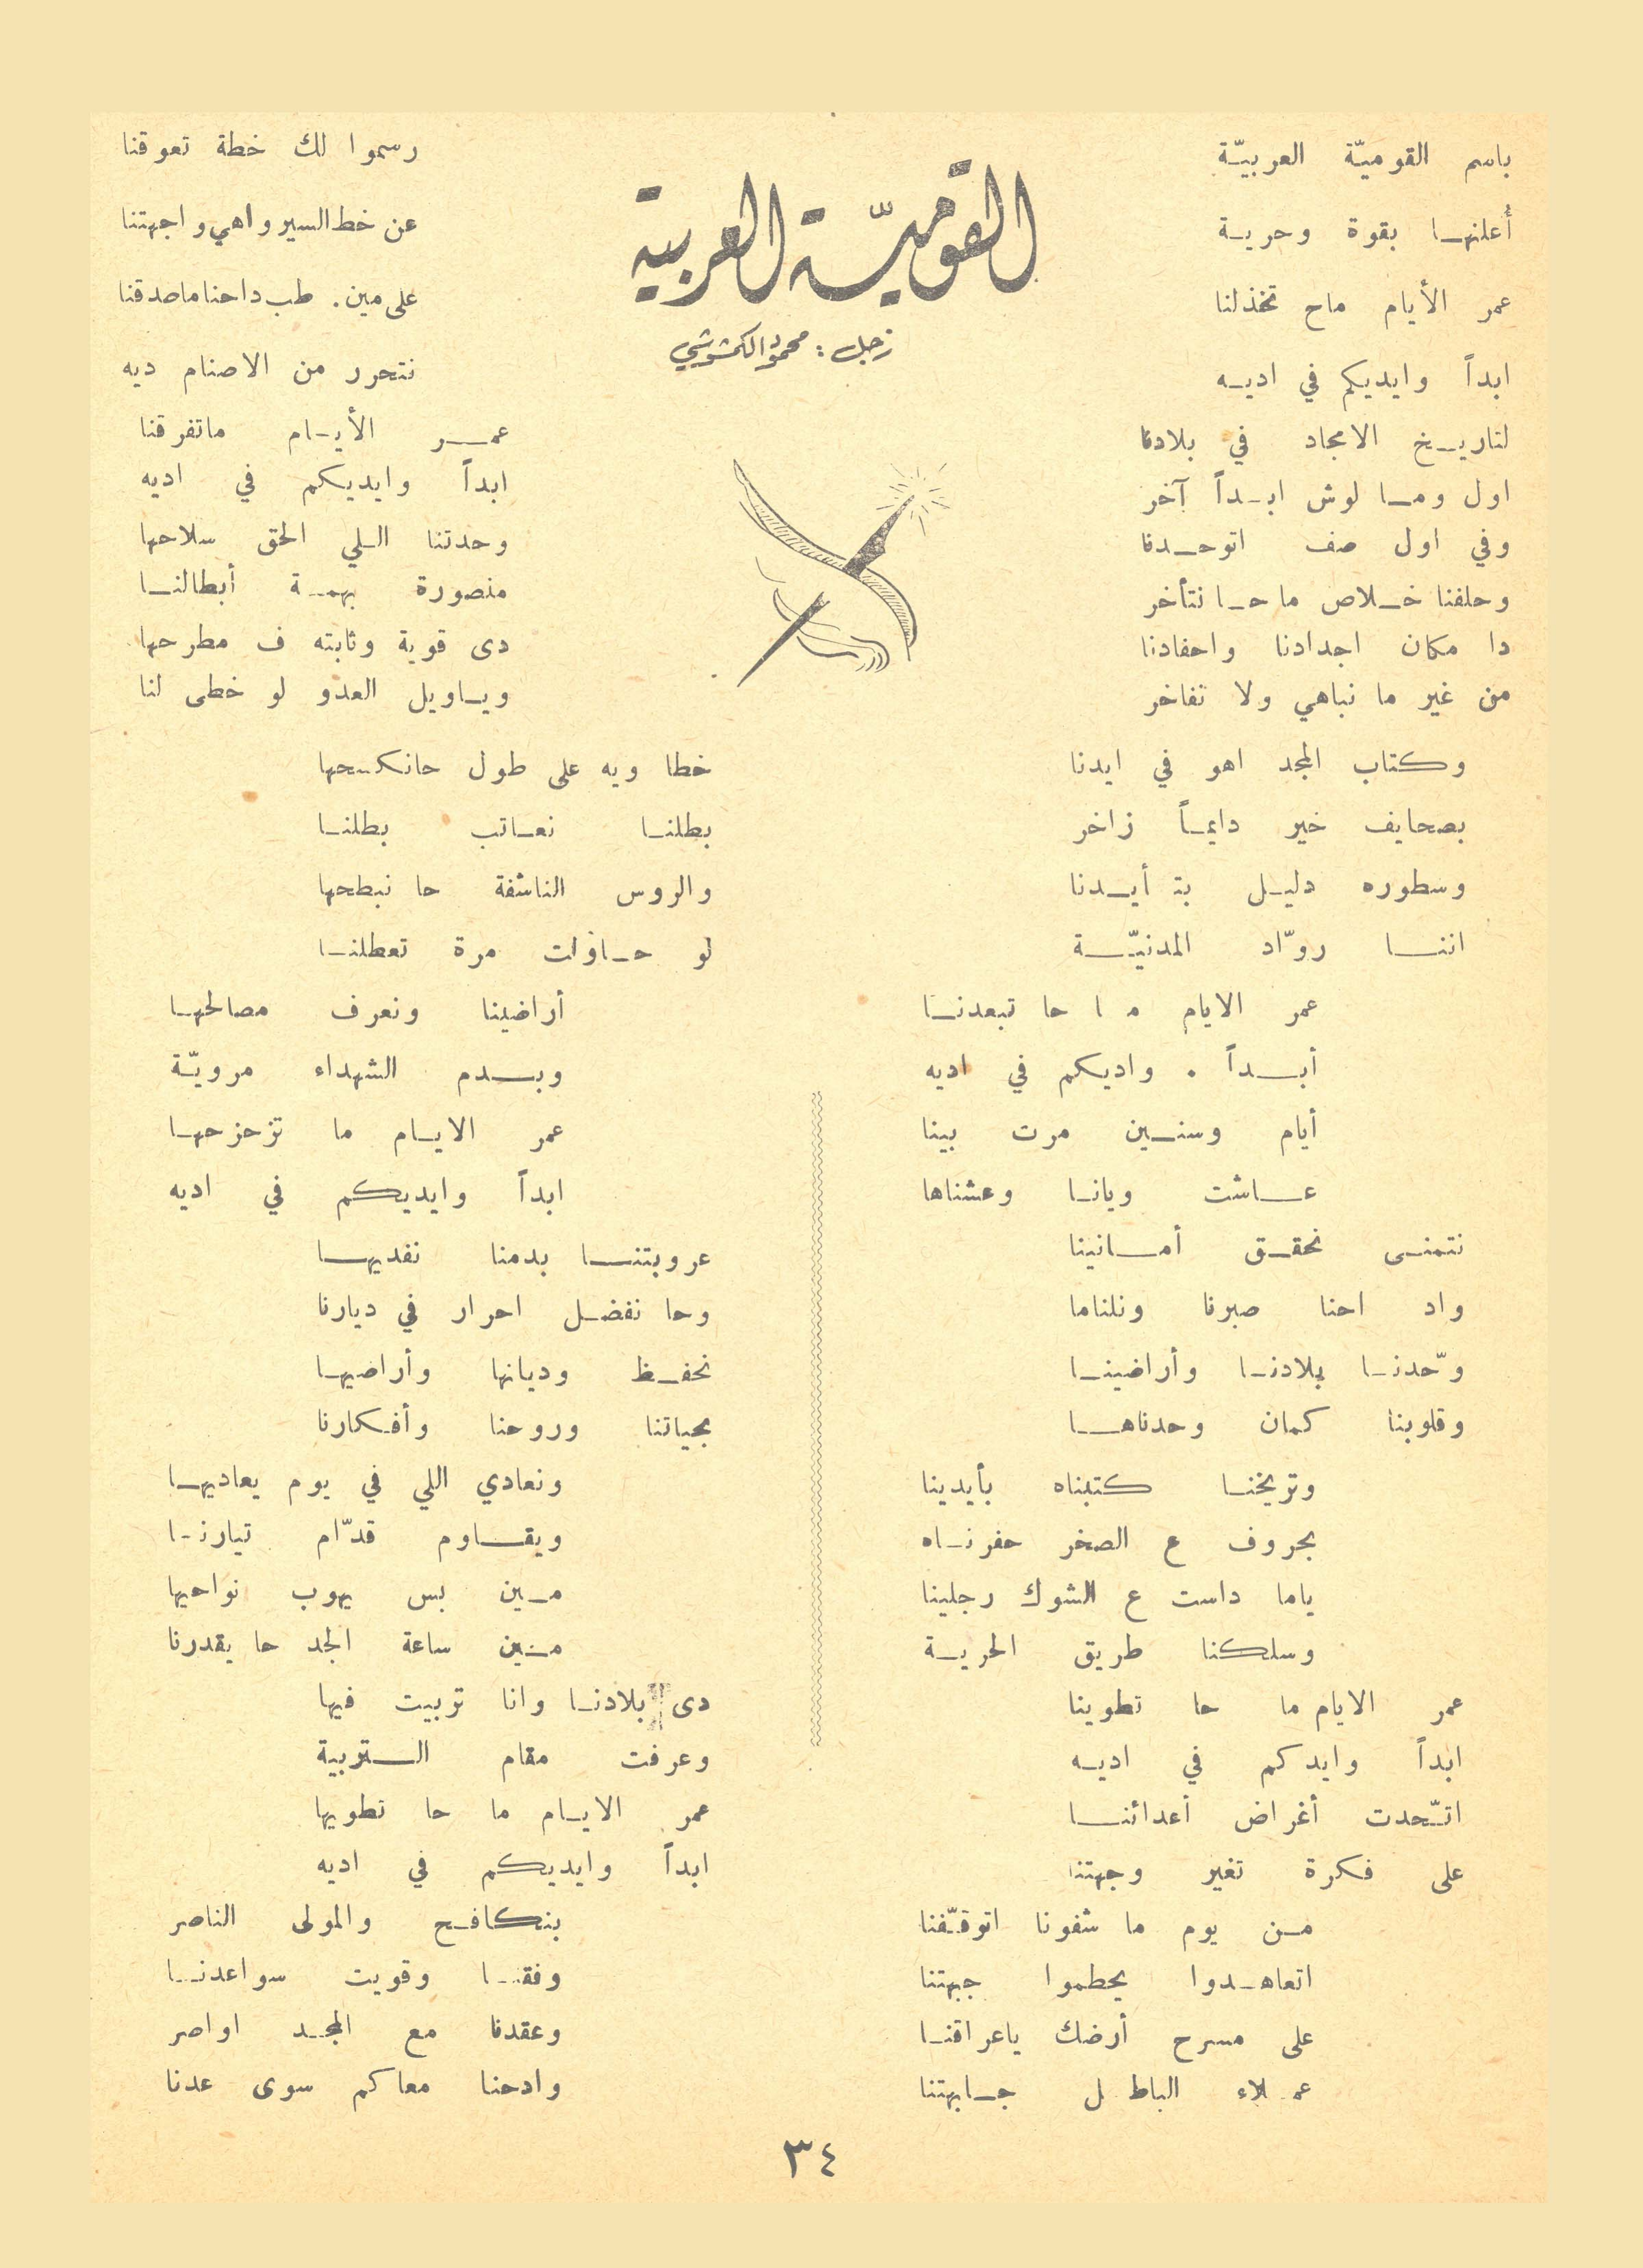 القوميّة العربية
زجل : محمود الكمشوشي
باسم القوميّة العربيّة
أُعلنهـا بقوة وحريـة
عمر الأيام ماح تخذلنا
ابداً وايديكم في اديـه
لتاريـخ الامجاد في بلادنا
اول ومـا لوش ابـداً آخر
وفي اول صف اتوحـدنا
وحلفنا خـلاص ما حـا نتأخر
دا مكان اجدادنا واحفادنا
من غير ما نباهي ولا نفاخر
وكتاب المجد اهو في ايدنا
بصحايف خير دايمـاً زاخر
وسطوره دليـل بتأيـدنا
اننـا روّاد المدنيّـة
عمر الايام ما حا تبعدنـا
أبـداً . واديكم في اديه
أيام وسنـين مرت بينا
عـاشت ويانـا وعشناها
نتمنـى نحقـق أمـانينا
واد احنا صبرنا ونلناما
وّحدنـا بلادنـا وأراضينـا
وقلوبنا كمان وحدناهـا
وتريخنـا كتبناه بأيدينا
بحروف ع الصخر حفرنـاه
ياما داست ع الشوك رجلينا
وسلكنا طريق الحريـة
عمر الايام ما حا تطوينا
ابداً وايدكم في اديـه
اتّـحدت أغراض أعدائنـا
على فكرة تغير وجهتنا
مـن يوم ما شفونا اتوقـّفنا
اتعاهـدوا يحطموا جبهتنا
على مسرح أرضك ياعراقنـا
عمـلاء الباطل جـابهتنا
رسموا لك خطة تعوقنا
عن خط السير واهي واجهتنا
على مين . طب داحنا ماصدقنا
نتحرر من الاصنام ديه
عمـر الأيـام ماتفرقنا
ابداً وايديكم في اديه
وحدتنا اللي الحق سلاحها
منصورة بهمـة أبطالنـا
دى قوية وثابته ف مطرحها
ويـاويل العدو لو خطى لنا
خطا ويه على طول حانكسحها
بطلنـا نعـاتب بطلنـا
والروس الناشفة حا نبطحها
لو حـاولت مرة تعطلنـا
أراضينا ونعرف مصالحهـا
وبـدم الشهداء مرويّـة
عمر الايـام ما تزحزحهـا
ابداً وايديكم في اديه
عروبتنـا بدمنا نفديهـا
وحا نفضـل احرار في ديارنا
نحفـظ وديانها وأراضيهـا
بحياتنا وروحنا وأفـكارنا
ونعادي اللي في يوم يعاديهـا
ويقـاوم قدّام تيارنـا
مـين بس يهوب نواحيها
مـين ساعة الجد حا يقدرنا
دى بلادنـا وانا تربيت فيها
وعرفت مقام الـتربية
عمر الايـام ما حا تطويها
ابداً وايديكم في اديه
بنكافـح والمولى الناصر
وفقنـا وقويت سواعدنـا
وعقدنا مع المجـد اواصر
وادحنا معاكم سوى عدنا
٣٤